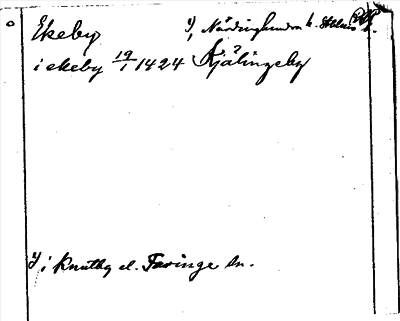 Ekeby y, Närdinghundra h. Sthlms l.
i ekeby 19/1 1424 Kjälingeby ?
y, i Knutby el. Faringe sn.